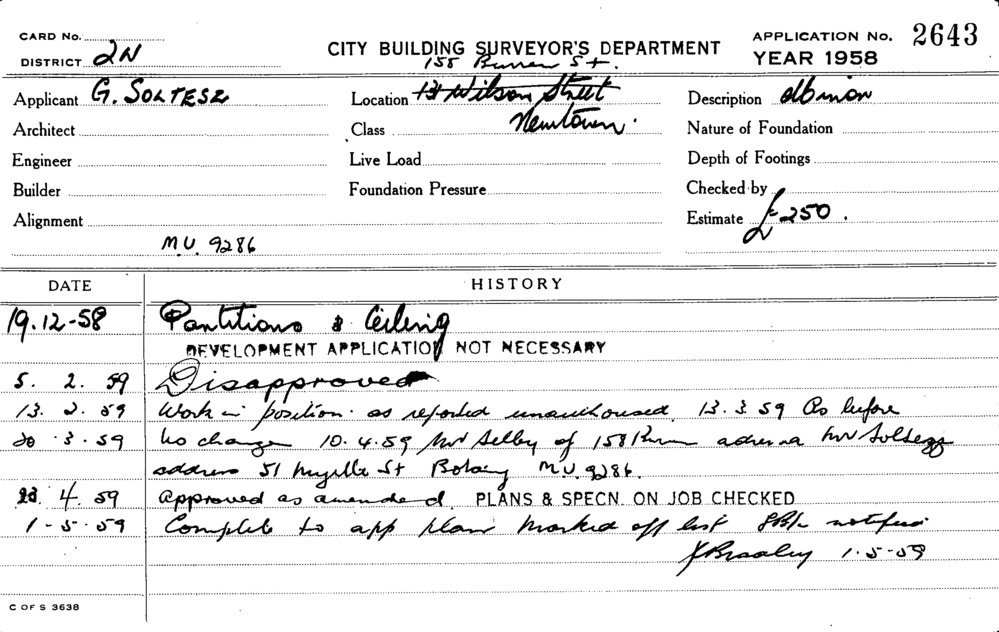 CARD No.
DISTRICT 2N
CITY BUILDING SURVEYOR'S DEPARTMENT
APPLICATION No. 2643
YEAR 1958
158 Burren St.
Applicant G. SOLTESZ
Location 13 Wilson Street
Description
Architect
Class Newtown.
Nature of Foundation
Engineer
Live Load
Depth of Footings
Builder
Foundation Pressure
Checked by
Alignment
Estimate £250.
M.U. 9286
DATE HISTORY
19.12-58 Partitions & Ceiling
DEVELOPMENT APPLICATION NOT NECESSARY
5. 2. 59 Disapproved
13. 2. 59 Work in position as reported unauthorised. 13.3 59 As before
20 3. 59 No change 10.4.59 Mr Selby of 158 Burren Mr Soltesz
address 51 Myrtle St Botany M.U. 9286.
23. 4. 59 Approved as amended PLANS & SPECN. ON JOB CHECKED
1-5-59 Complete to app plan marked off list notified
1.5-59
C OF S 3638